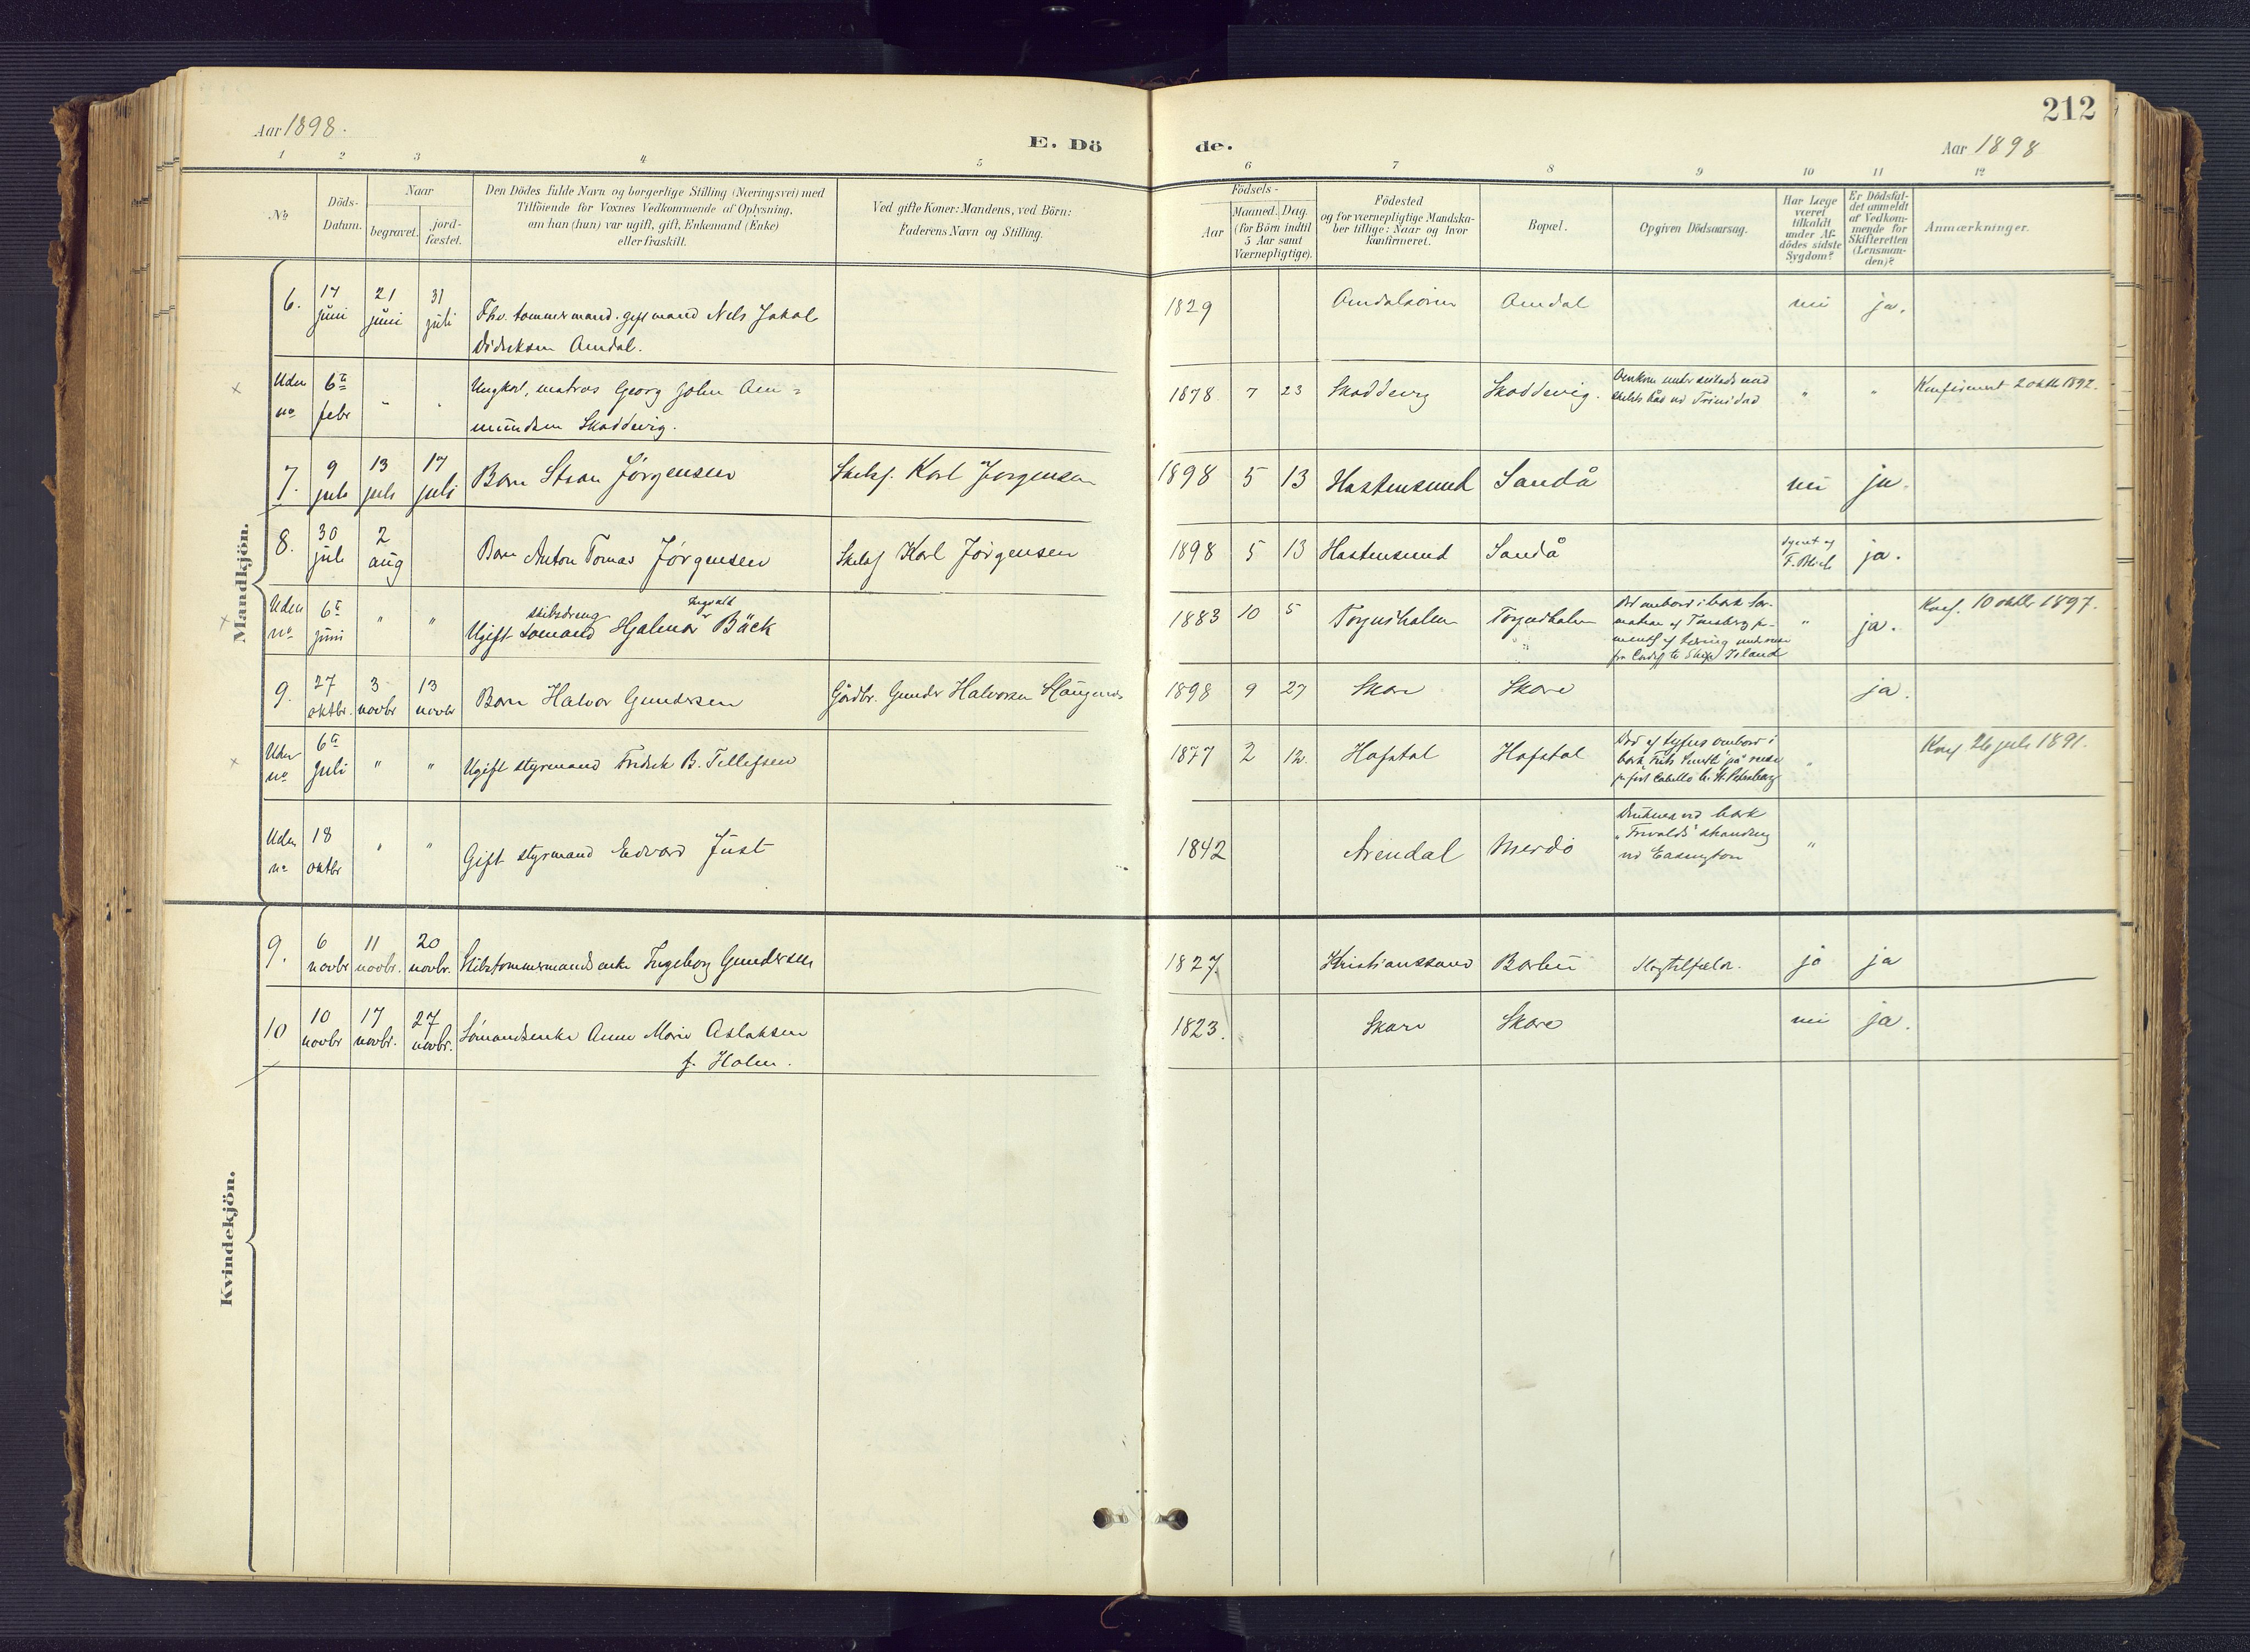 Aar 1898.
E. Dö
de.
212
Aar 1898
1 2 3 4 5 6 7 8 9 10 11 12
№
Döds-
Datum.
Naar
begravet.
jord-
fæstet.
Den Dödes fulde Navn og borgerlige Stilling (Næringsvei) med
Tilföiende for Voxnes Vedkommende af Oplysning,
om han (hun) var ugift, gift, Enkemand (Enke)
eller fraskilt.
Ved gifte Koner: Mandens, ved Börn:
Faderens Navn og Stilling.
Födsels-
Aar
Maaned.
Dag.
(for Börn indtil
5 Aar samt
Værnepligtige).
Födested
og for værnepligtige Mandska-
ber tillige: Naar og hvor
konfirmeret.
Bopæl.
Opgiven Dödsaarsag.
Har Læge
været
tilkaldt
under Af-
dödes sidste
Sygdom?
Er Dödsfal-
det anmeldt
af Vedkom-
mende for
Skifteretten
(Lensman-
den)?
Anmærkninger.
Mandkjön.
6. 17 juni 21 juni 31 juli Fhv. tømmermand. gift mand Nils Jakob
Didriksen Amdal.
1829 Amdal nei ja.
Uden no 6te febr " " Ungkarl, matros Georg John Am=
mundsen Skaddevig.
1878 7 23 Skaddevig Skaddevig. Omkom under seilads med
ved Trinidad " " Konfirmeret 2 oktb 1892.
7. 9 juli 13 juli 17 juli Barn Jörgensen Karl Jorgensen
1898 5 13 Hastensund Sandå nei ja.
8. 30 juli 2 aug Barn Anton Tomas Jörgensen Karl Jörgensen
1898 5 13 Hastensund Sandå ja.
Uden no 6te juni " " skibsdreng Ingvald
Ugift sømand Hjalmar Bäck
1883 10 5 Torjusholm Torjusholm Död ombord i bark
af Tønsberg
af tæring
fra Cardiff til Ship Island " ja. Konf. 10 oktbr 1897.
9. 27 oktbr. 3 novbr 13 novbr Barn Halvor Gundersen Gårdbr. Gunder Halvorsen
1898 9 27 Skare Skare ja.
Uden no 6te juli " " Ugift styrmand Fredrik B. Tellefsen
1877 2 12. Hafstal Hafstal Död af tyfus ombord i
bark Fritz på reise
Cabello St. Petersburg " Konf 26 juli 1891.
Uden no 18 oktbr " " Gift styrmand Edvard Just
1842 Arendal Merdö Druknet ved bark
stranding
ved Easington "
Kvindekjön.
9. 6 novbr 11 novbr. 20 novbr. Skibstømmermandsenke Ingeborg Gundersen
1827 Kristianssand Barbu Slagtilfælde. ja ja
10 10 novbr 17 novbr. 27 novbr. Sömandsenke Anne Marie Aslaksen
f. Holm.
1823. Skare Skare nei ja.